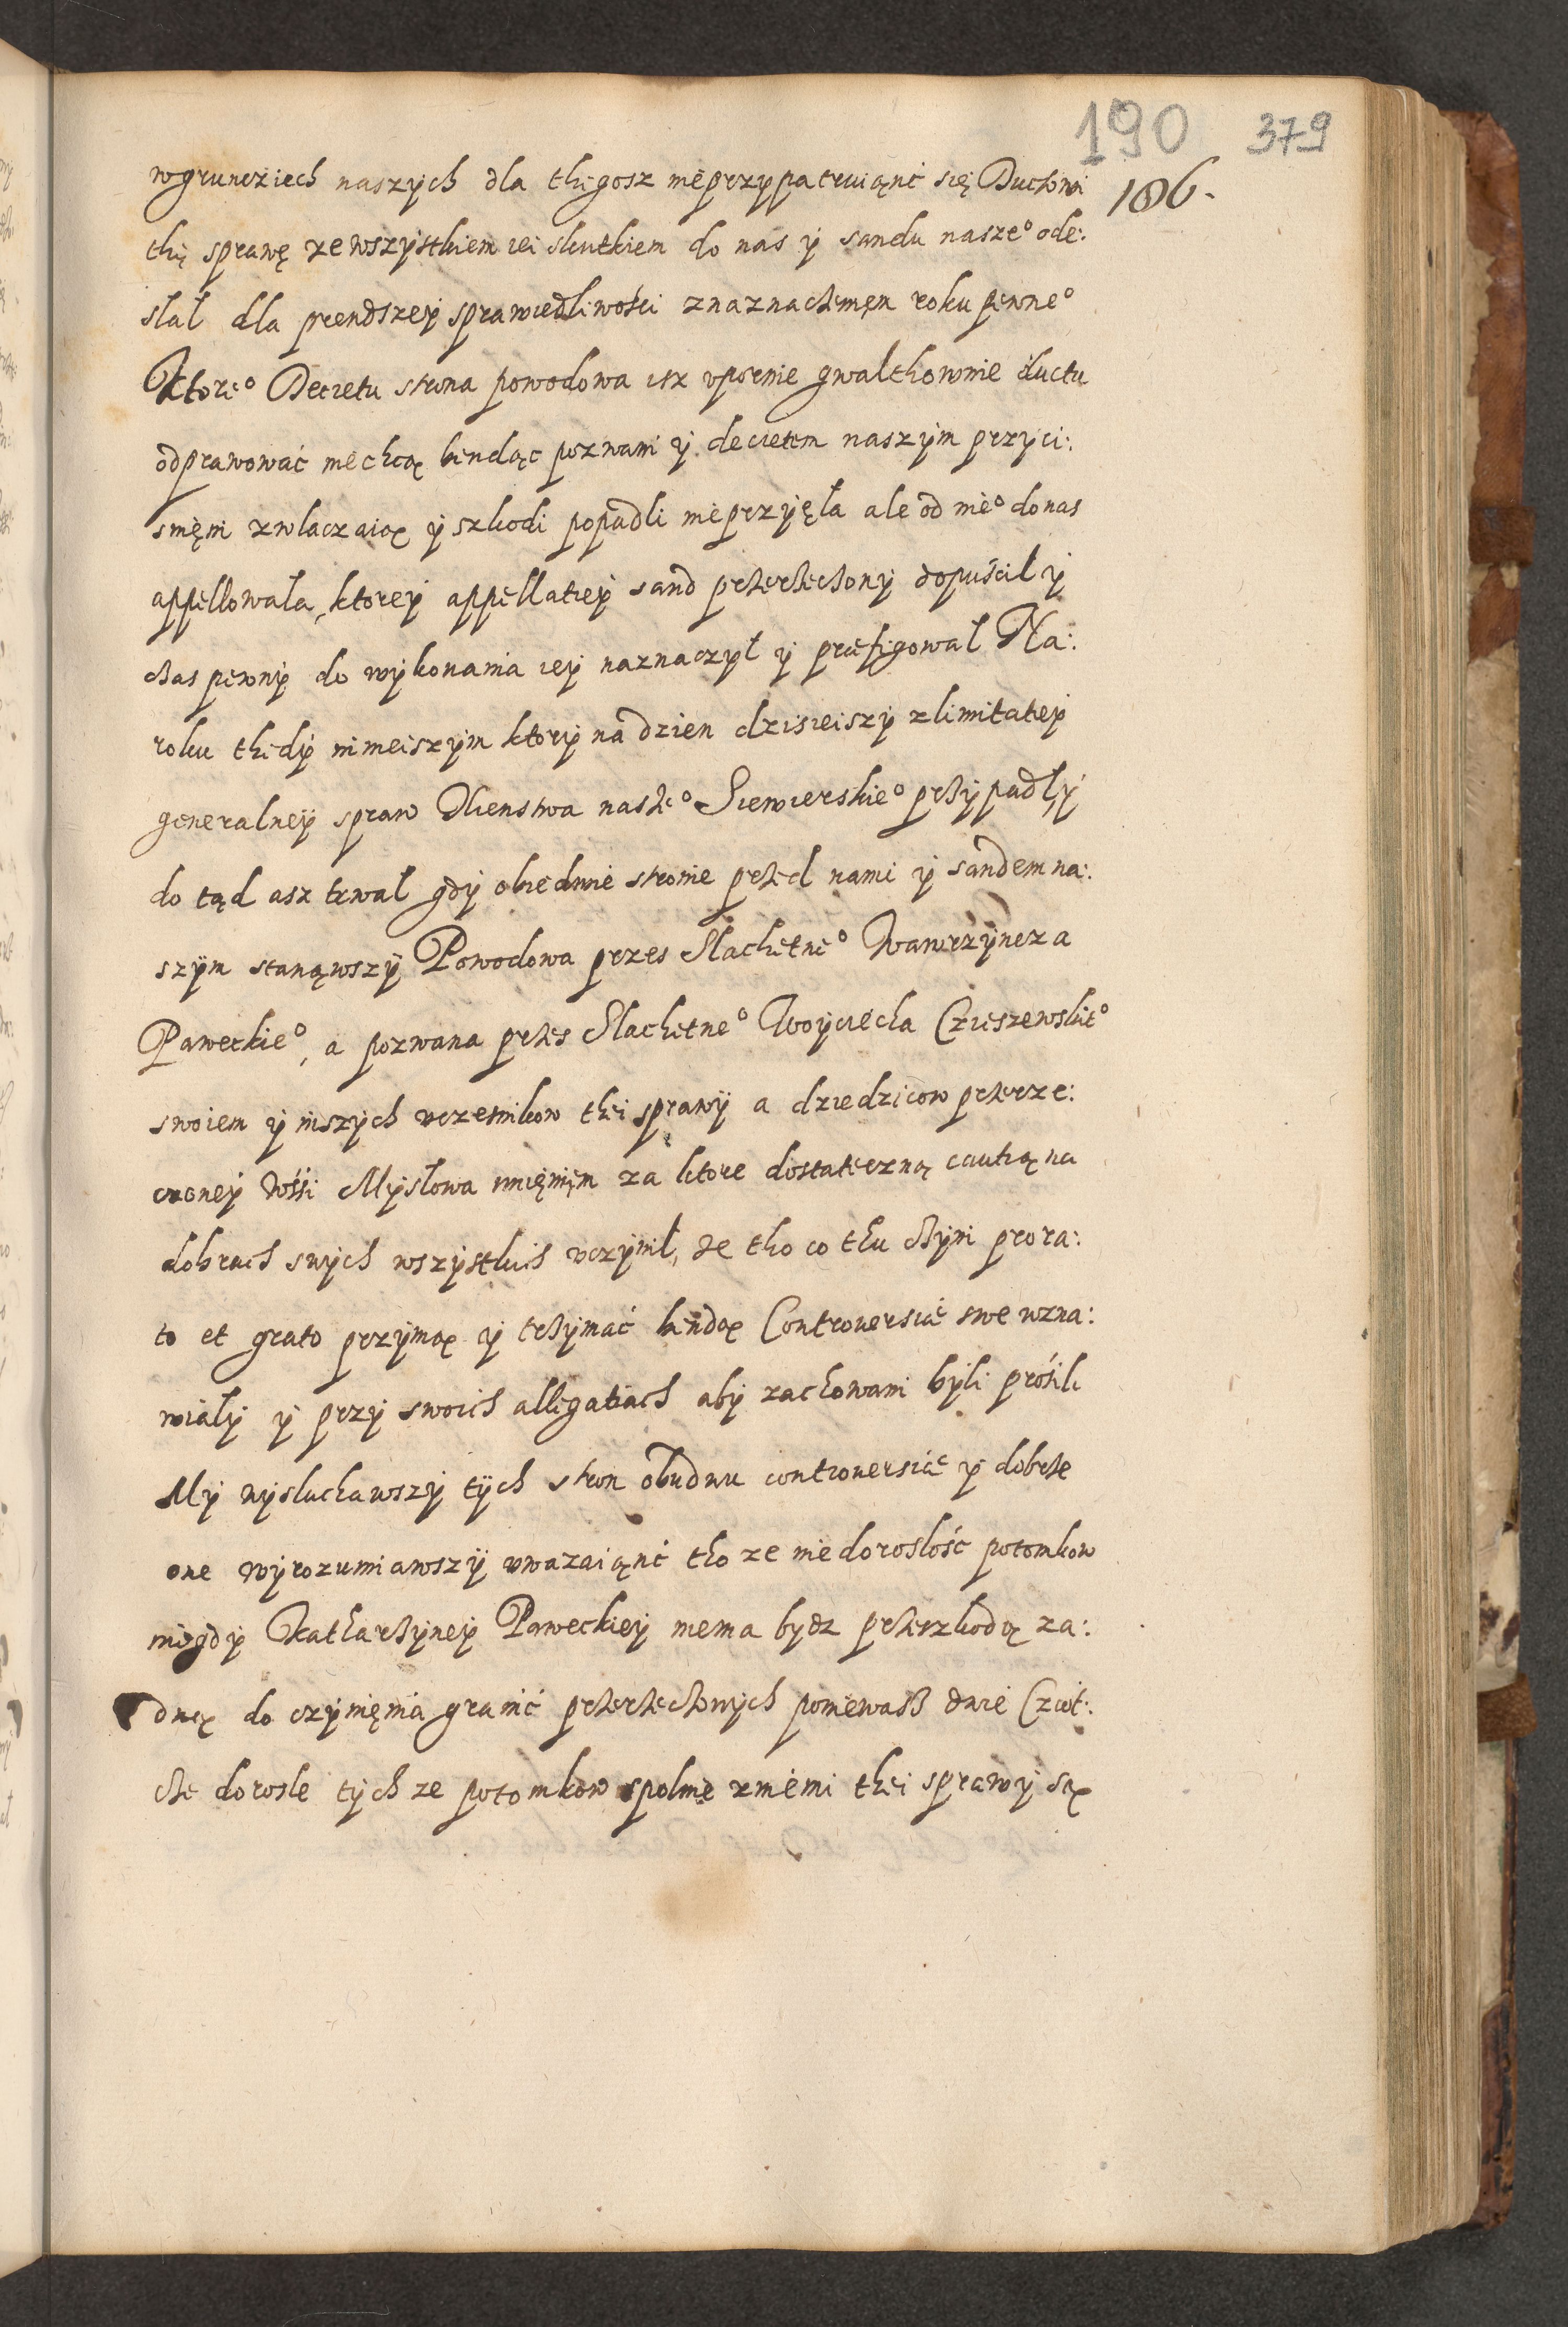 190 379
186.
wgrunciech naszych dla thegosz nieprzypatruiąnc się Ductowi
thę sprawę ze wszystkiem iei skutkiem do nas y sandu nasze° ode:
słał dla prendszey sprawiedliwości znaznaczenięn roku pewne°
Ktore° Decretu strona powodowa isz vpornie gwalthownie ductu
odprawować niechcą bendąc pozwani y decretem naszym przyci:
snięni zwlaczaiąc y szkodi popadli nieprzyięła ale od nie° do nas
appellowała, ktorey appellatiey sand przerzeczony dopuścił y
czas pewny do wykonania iey naznaczył y prefigował Na:
roku thedy ninieiszym ktory na dzien dzisieiszy zlimitatiey
generalney spraw Xienstwa nasze° Siewierskie° przypadły
do tąd asz trwał gdy obiedwie stronie przed nami y sandem na:
szym stanąwszy Powodowa przes Slachetne° Wawrzyncza
Paweckie°, a pozwana przes Slachetne° Woyciecha Czieszewskie°
swoiem y inszych vczesnikow thei sprawy a dziedzicow przerze:
czoney wśsi Mysłowa imięnięm za ktore dostateczną cautią na
dobrach swych wszystkich vczynił, ze tho co thu czyni pro ra:
to et grato przyimą y trzymać bendą Controuersiae swe wzna:
wiały y przy swoich allegatiach aby zachowani byli prosili
My wysluchawszy tych stron obudwu controuersiae y dobrze
one wyrozumiawszy vwazaiąnc tho ze niedoroslość potomkow
niegdy Katharzyney Paweckiey niema bydz przeszkodą za:
dną do czynięnia granic przerzeczonych poniewasz dwie Cziot:
cze dorosle tychze potomkow spolnie zniemi thei sprawy są